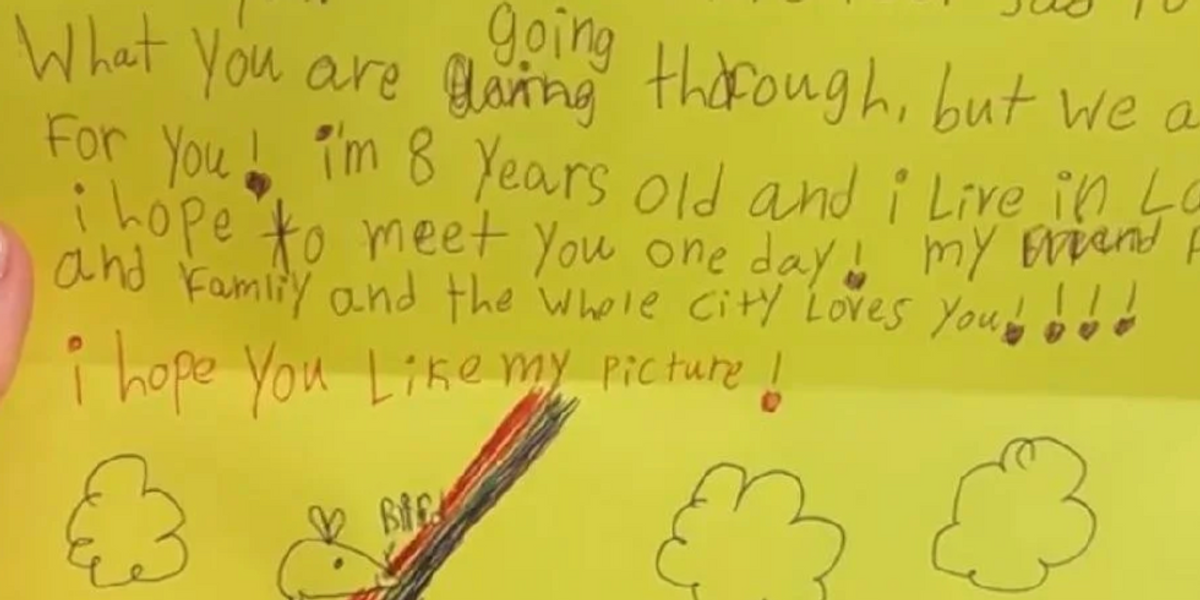 going
What you are through, but we a
For you! i'm 8 years old and i Live in Lo
i hope to meet you one day! my
and Famliy and the whole city Loves you!!!!
i hope you Like my picture!
Bird